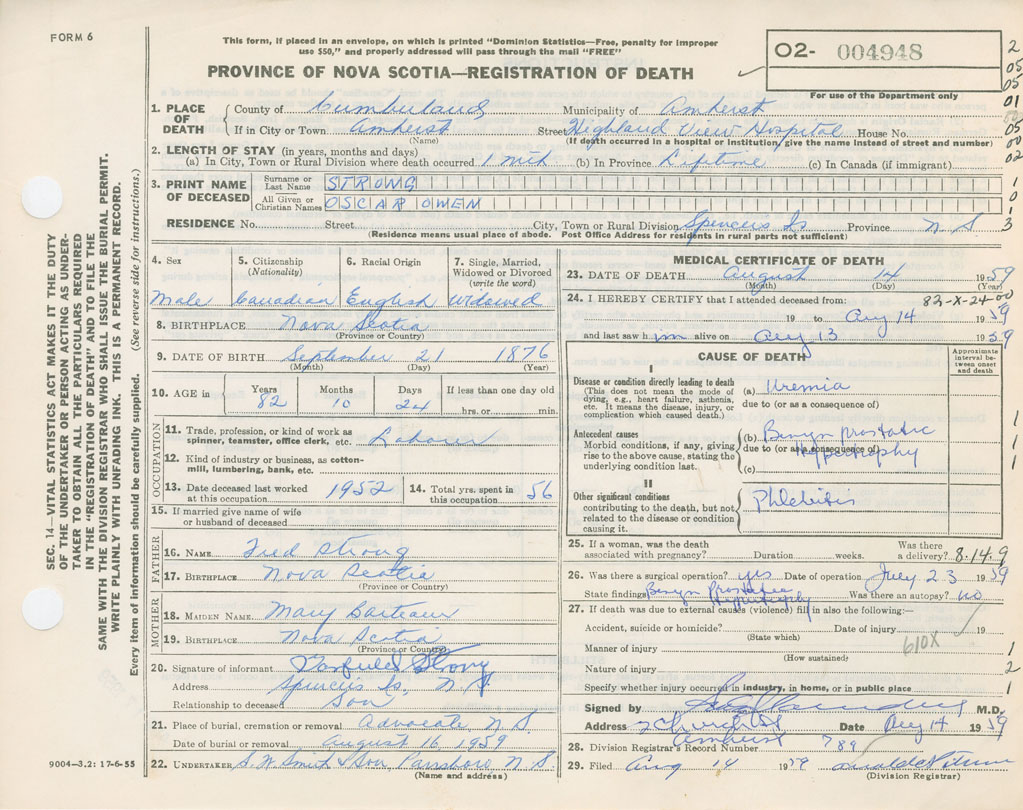 FORM 6
This form, if placed in an envelope, on which is printed "Dominion Statistics—Free, penalty for improper
use $50," and properly addressed will pass through the mail "FREE"
PROVINCE OF NOVA SCOTIA—REGISTRATION OF DEATH
02- 004948
For use of the Department only
2
05
05
01
05
00
02
1
0
1
3
SEC. 14—VITAL STATISTICS ACT MAKES IT THE DUTY
OF THE UNDERTAKER OR PERSON ACTING AS UNDER-
TAKER TO OBTAIN ALL THE PARTICULARS REQUIRED
IN THE "REGISTRATION OF DEATH" AND TO FILE THE
SAME WITH THE DIVISION REGISTRAR WHO SHALL ISSUE THE BURIAL PERMIT.
WRITE PLAINLY WITH UNFADING INK. THIS IS A PERMANENT RECORD.
Every item of information should be carefully supplied. (See reverse side for instructions.)
1. PLACE OF DEATH County of Cumberland Municipality of Amherst
If in City or Town Amherst Street Highland View Hospital House No.
(Name) (If death occurred in a hospital or institution, give the name instead of street and number)
2. LENGTH OF STAY (in years, months and days)
(a) In City, Town or Rural Division where death occurred 1 mth (b) In Province Lifetime (c) In Canada (if immigrant)
3. PRINT NAME OF DECEASED Surname or Last Name STRONG
All Given or Christian Names OSCAR OWEN
RESIDENCE No. Street City, Town or Rural Division Spencer's Is Province N S
(Residence means usual place of abode. Post Office Address for residents in rural parts not sufficient)
4. Sex 5. Citizenship (Nationality) 6. Racial Origin 7. Single, Married, Widowed or Divorced (write the word)
Male Canadian English Widowed
8. BIRTHPLACE Nova Scotia
(Province or Country)
9. DATE OF BIRTH September 21 1876
(Month) (Day) (Year)
10. AGE in Years 82 Months 10 Days 24 If less than one day old hrs. or min.
OCCUPATION
11. Trade, profession, or kind of work as spinner, teamster, office clerk, etc. Labourer
12. Kind of industry or business, as cotton-mill, lumbering, bank, etc.
13. Date deceased last worked at this occupation 1952 14. Total yrs. spent in this occupation 56
15. If married give name of wife or husband of deceased
FATHER
16. NAME Fred Strong
17. BIRTHPLACE Nova Scotia
(Province or Country)
MOTHER
18. MAIDEN NAME Mary
19. BIRTHPLACE Nova Scotia
(Province or Country)
20. Signature of informant Strong
Address Spencer's Is, N.S.
Relationship to deceased Son
21. Place of burial, cremation or removal Advocate N.S.
Date of burial or removal August 16, 1959
22. UNDERTAKER S. W. Smith & Son, Parrsboro, N.S.
(Name and address)
9004—3.2: 17-6-55
MEDICAL CERTIFICATE OF DEATH
23. DATE OF DEATH August 14 1959
(Month) (Day) (Year)
24. I HEREBY CERTIFY that I attended deceased from: 82-X-24-00
19 to Aug 14 1959
and last saw him alive on Aug 13 1959
CAUSE OF DEATH
Approximate interval between onset and death
I
Disease or condition directly leading to death
(This does not mean the mode of dying, e.g., heart failure, asthenia, etc. It means the disease, injury, or complication which caused death.)
(a) Uremia
due to (or as a consequence of)
Antecedent causes
Morbid conditions, if any, giving rise to the above cause, stating the underlying condition last.
(b) Benign prostatic
due to (or as a consequence of) Hypertrophy
(c)
1
1
1
II
Other significant conditions
contributing to the death, but not related to the disease or condition causing it.
Phlebitis
25. If a woman, was the death associated with pregnancy? Duration weeks. Was there a delivery? 8.14.9
26. Was there a surgical operation? yes Date of operation July 23 1959
State findings Benign Prostatic Hypertrophy Was there an autopsy? no
27. If death was due to external causes (violence) fill in also the following:—
Accident, suicide or homicide? Date of injury 19
(State which)
610X
Manner of injury 1
(How sustained)
Nature of injury 2
Specify whether injury occurred in industry, in home, or in public place 1
Signed by M.D.
Address Amherst Date Aug 14 1959
28. Division Registrar's Record Number 789
29. Filed Aug 14 1959
(Division Registrar)